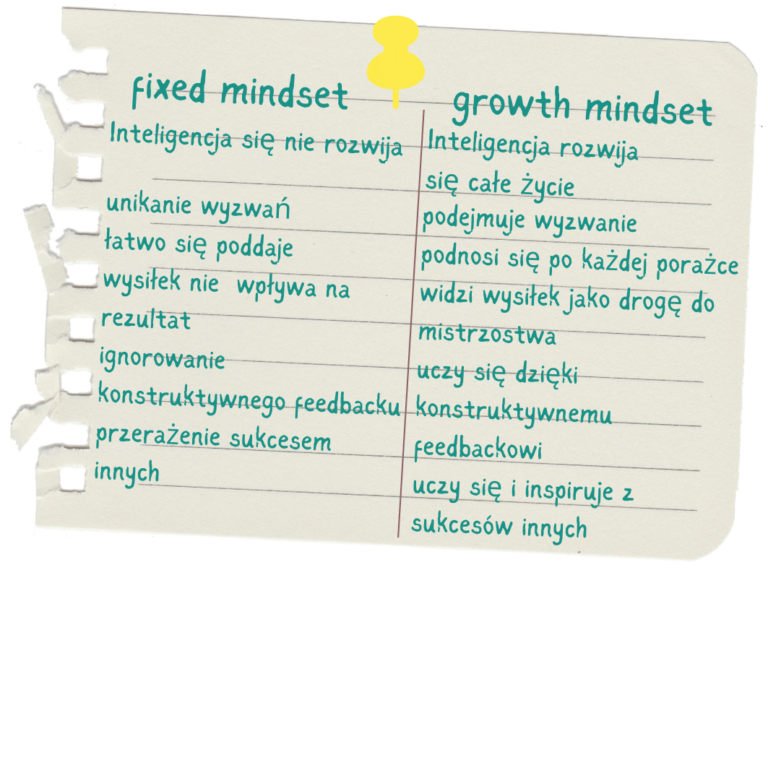 fixed mindset
Inteligencja się nie rozwija
unikanie wyzwań
łatwo się poddaje
wysiłek nie wpływa na
rezultat
ignorowanie
konstruktywnego feedbacku
przerażenie sukcesem
innych
growth mindset
Inteligencja rozwija
się całe życie
podejmuje wyzwanie
podnosi się po każdej porażce
widzi wysiłek jako drogę do
mistrzostwa
uczy się dzięki
konstruktywnemu
feedbackowi
uczy się i inspiruje z
sukcesów innych